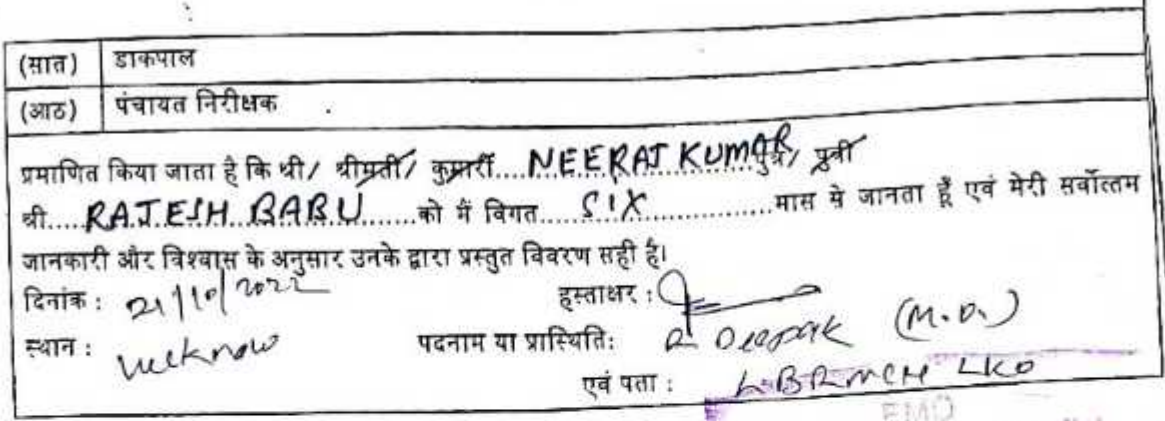 (सात) डाकपाल
(आठ) पंचायत निरीक्षक
प्रमाणित किया जाता है कि श्री/ श्रीमती/ कुमारी....NEERAJ KUMAR पुत्र/ पुत्री
श्री.....RAJESH BABU.......को मैं विगत.....SIX................मास से जानता हूँ एवं मेरी सर्वोत्तम
जानकारी और विश्वास के अनुसार उनके द्वारा प्रस्तुत विवरण सही है।
दिनांक : 21/10/2022 हस्ताक्षर :
स्थान : Lucknow पदनाम या प्रास्थिति: Dr Deepak (M.O.)
एवं पता : LBRMCH LKO
EMO